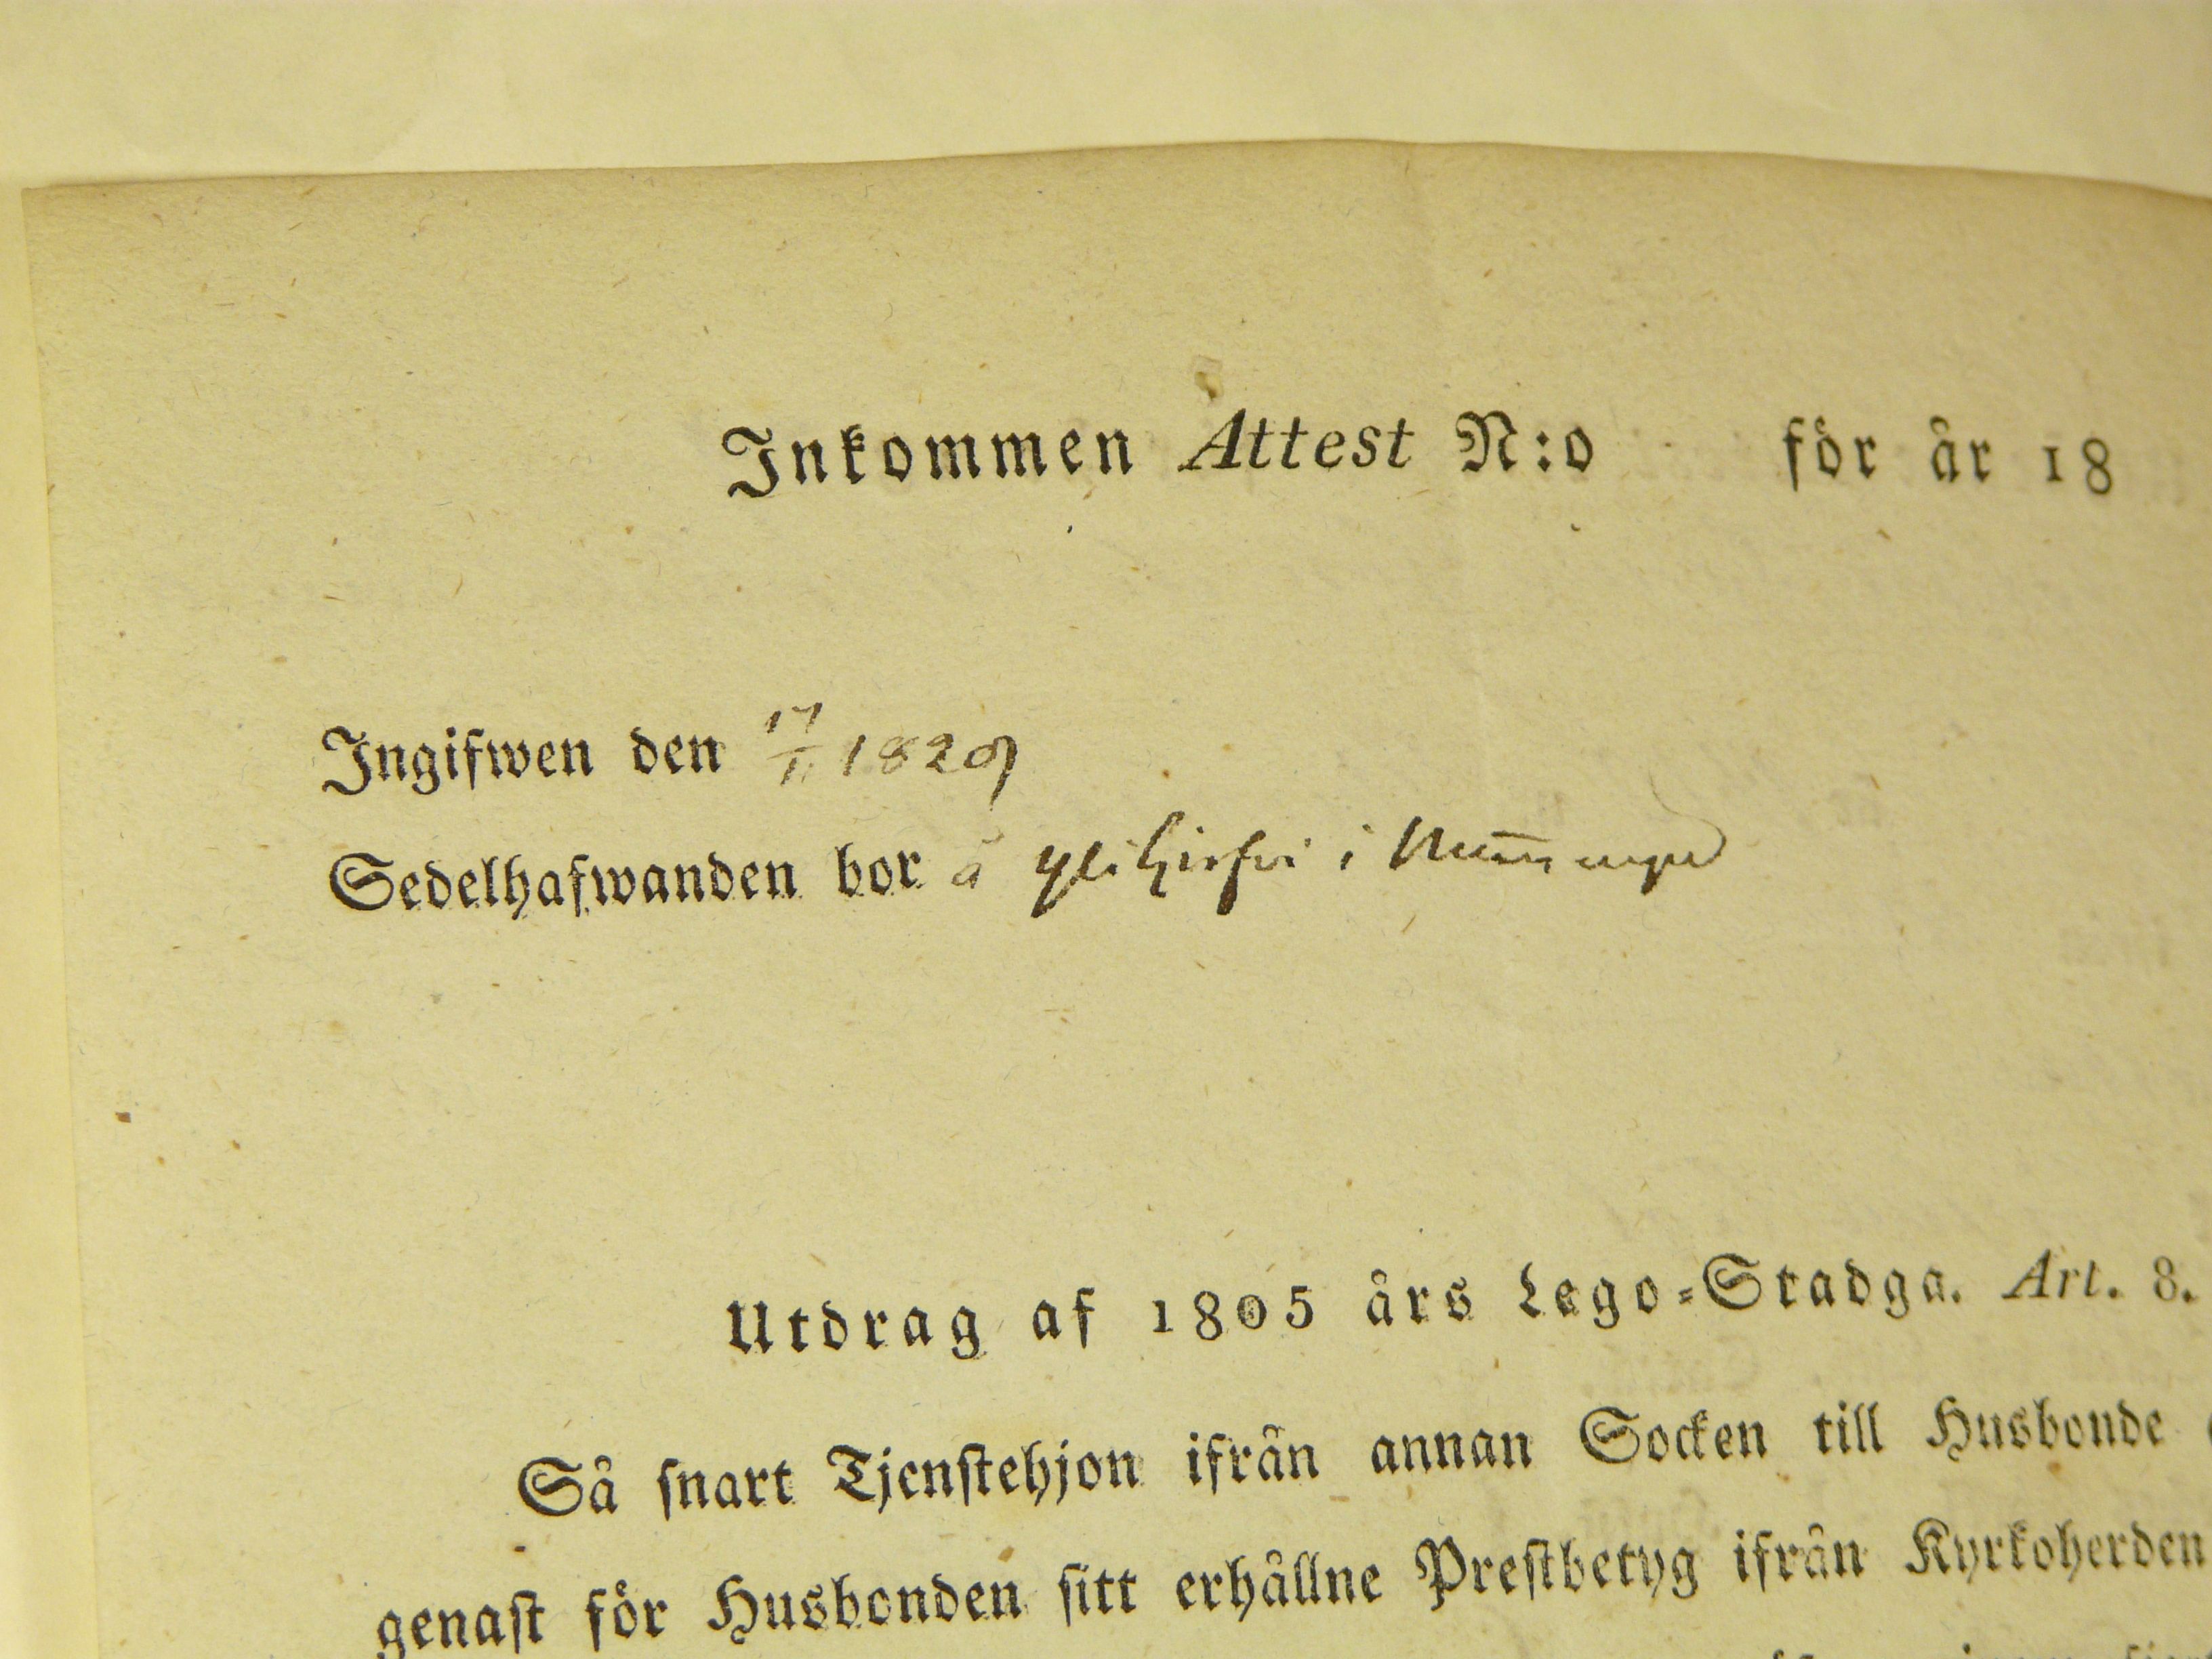 Inkommen Attest N:o för år 18
Ingifwen den 17/11 1829
Sedelhafwanden bor å i
Utdrag af 1805 års Lego-Stadga. Art. 8.
Så snart Tjenstehjon ifrån annan Socken till Husbonde
genast för Husbonden sitt erhållne Prestbetyg ifrån Kyrkoherden